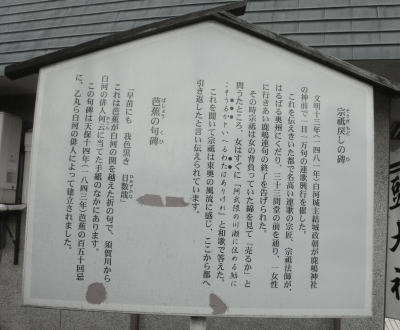 宗祇戻しの碑
文明十三年(一四八一年)白河城主結城政朝が鹿嶋神社
の神前で一日一万句の連歌興行を催した。
これを伝えきいた都で名高い連歌の宗匠、宗祇法師が、
はるばる奥州にくだり、三十三間堂の前を通り、一女性
に行きあい鹿嶋連句の終了を告げられた。
その時宗祇は女の背負っていた綿を見て「売るか」と
問うたところ、女はすぐに「阿武隈の川瀬に住める鮎に
こそうるかといへるわたはありけれ」と和歌で答えた。
これを聞いて宗祇は東奥の風流に感じ、ここから都へ
引き返したと言い伝えられています。
芭蕉の句碑
ばしょう
くひ
「早苗にも 我色黒き 日数哉」
これは芭蕉が白河の関を越えた折の句で、須賀川から
白河の俳人何云に当てた手紙のなかにあります。
この句碑は天保十四年(一八四三年)芭蕉の百五十回忌
に、乙丸ら白河の俳人によって建立されました。